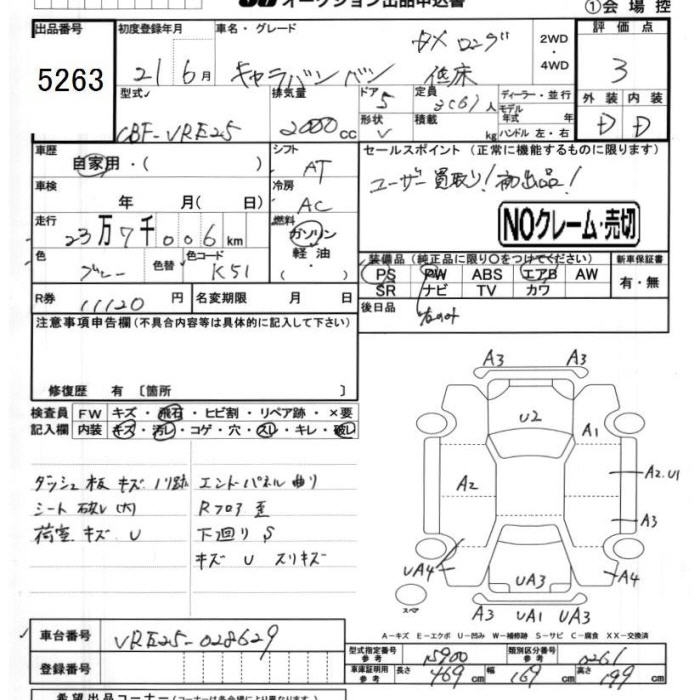 オークション出品申込書
①会場控
出品番号 初度登録年月 車名・グレード 評価点
5263 21 6月 キャラバンバン DXロング 低床 2WD・4WD 3
型式 排気量 ドア 定員 ディーラー・並行 外装 内装
CBF-VRE25 2000cc 5 3(6)人 モデル年式 年式 D D
形状 V 積載 kg ハンドル 左・右
車歴 シフト セールスポイント (正常に機能するものに限ります)
自家用・( ) AT ユーザー買取り!初出品!
車検 冷房
年 月( 日) AC
NOクレーム・売切
走行 燃料
23万7千006km ガソリン・軽油・
装備品 (純正品に限り○をつけてください) 新車保証書
色 色替 色コード PS PW ABS エアB AW 有・無
グレー K51 SR ナビ TV カワ
R券 11120円 名変期限 月 日
後日品 右のみ
注意事項申告欄(不具合内容等は具体的に記入して下さい)
修復歴 有 [箇所 ]
検査員 FW キズ・飛石・ヒビ割・リペア跡・×要
記入欄 内装 キズ・汚レ・コゲ・穴・スレ・キレ・破レ
ダッシュ板 キズ ノリ跡
シート 破レ(大)
荷室 キズ U
エンドパネル曲り
Rフロア歪
下回りS
キズ U スリキズ
A3 A3
U2
A1
A2 A2.U1
A3
UA4 UA3 A4
スペア UA1 UA3
A－キズ E－エクボ U－凹み W－補修跡 S－サビ C－腐食 XX－交換済
車台番号 VRE25-028629
登録番号
型式指定番号 参考 15900 類別区分番号 参考 0261
車庫証明用 参考 長さ 469cm 幅 169cm 高さ 199cm
希望出品コーナー